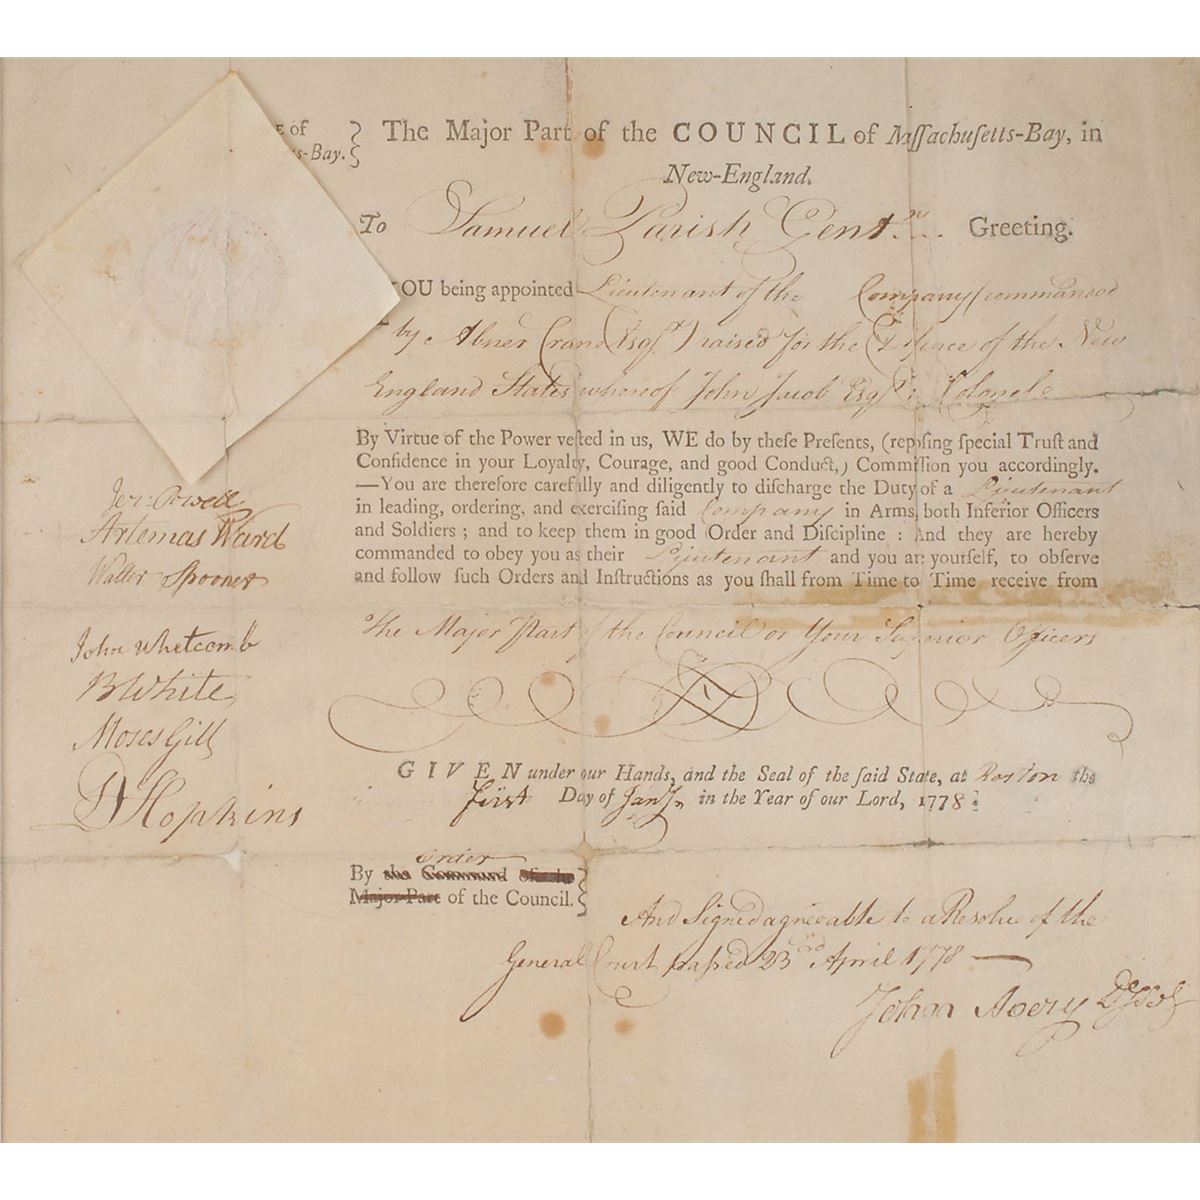 E of
ts-Bay.
The Major Part of the COUNCIL of Massachusetts-Bay, in
New-England.
To Samuel Parish Gent.n Greeting.
OU being appointed Lieutenant of the Company (commanded
by Abner Crane Esqr.) raised for the Defence of the New
England States whereof John Jacob Esqr. is Colonel
By Virtue of the Power vested in us, WE do by these Presents, (reposing special Trust and
Confidence in your Loyalty, Courage, and good Conduct,) Commission you accordingly.
—You are therefore carefully and diligently to discharge the Duty of a Lieutenant
in leading, ordering, and exercising said Company in Arms, both Inferior Officers
and Soldiers ; and to keep them in good Order and Discipline : And they are hereby
commanded to obey you as their Lieutenant and you are yourself, to observe
and follow such Orders and Instructions as you shall from Time to Time receive from
The Major Part of the Council or Your Superior Officers
GIVEN under our Hands, and the Seal of the said State, at Boston the
first Day of Jany. in the Year of our Lord, 1778.
Jer: Powell
Artemas Ward
Walter Spooner
John Whetcomb
B White
Moses Gill
D Hopkins
order
By the Command of the
Major Part of the Council.
And Signed agreeable to a Resolve of the
General Court passed 23rd April 1778 —
John Avery Dy Secy